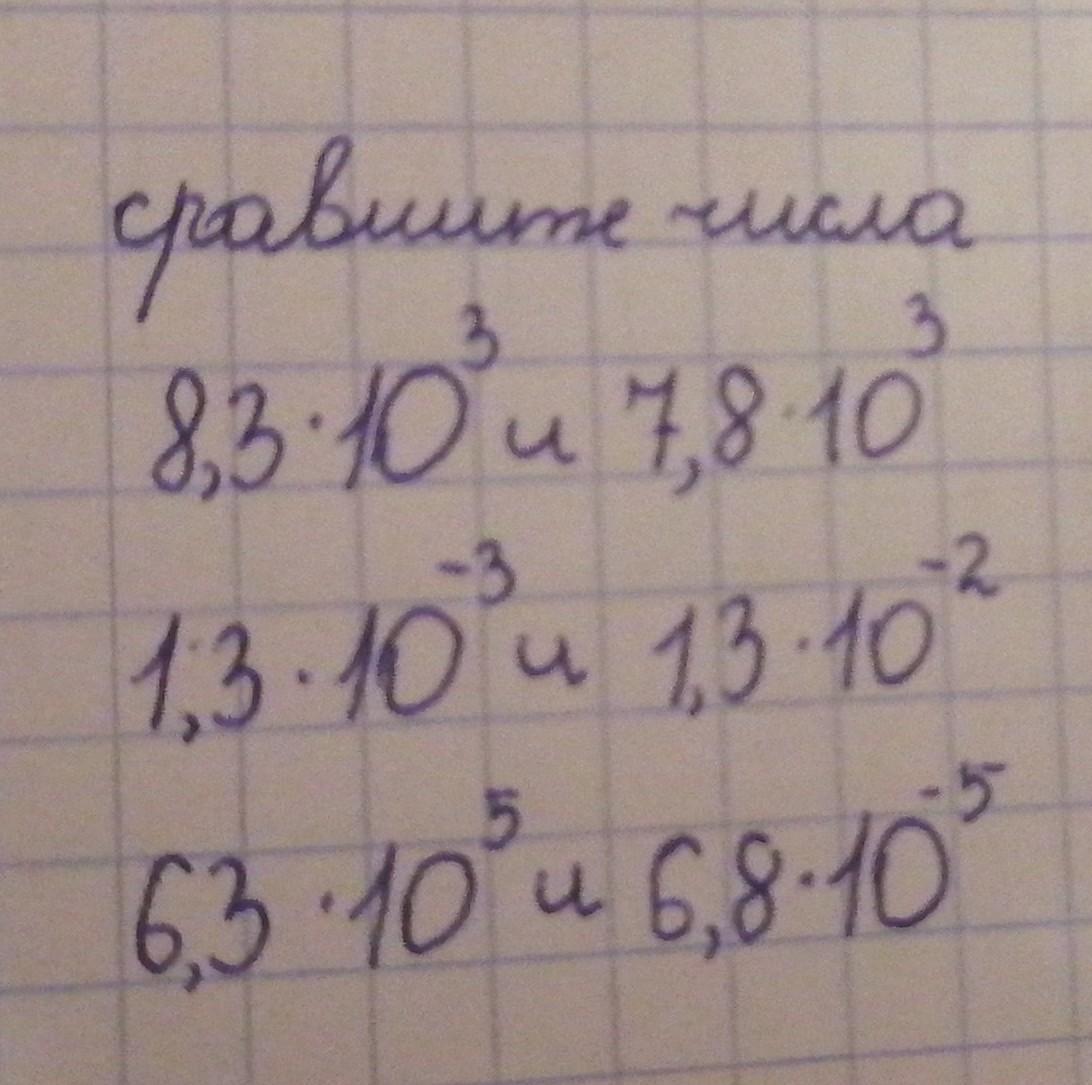 сравните числа
8,3·10³ и 7,8·10³
1,3·10⁻³ и 1,3·10⁻²
6,3·10⁵ и 6,8·10⁻⁵